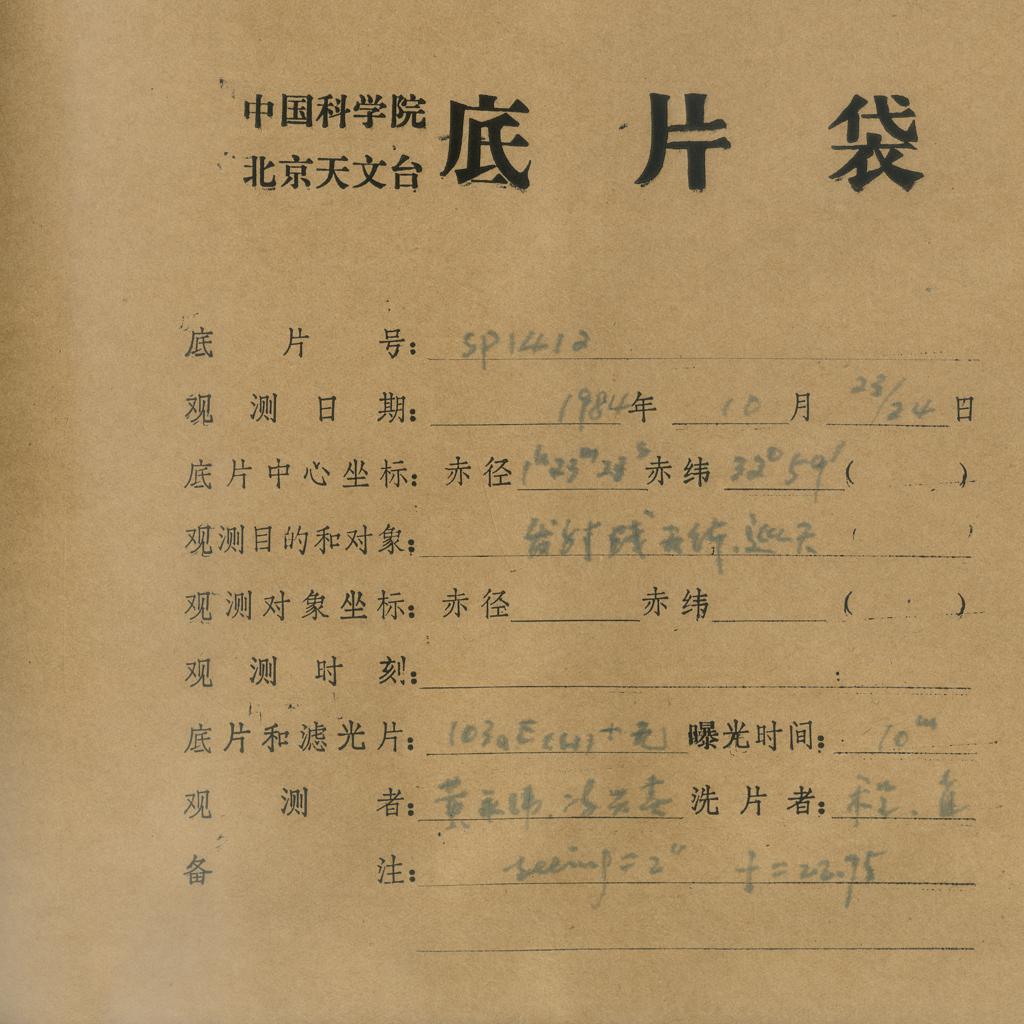 中国科学院
北京天文台
底片袋
底片号: SP1412
观测日期: 1984年 10月 23/24日
底片中心坐标: 赤径 1h23m23s 赤纬 32°59′ ( )
观测目的和对象: 发射线天体.巡天 ( )
观测对象坐标: 赤径 赤纬 ( )
观测时刻: :
底片和滤光片: 103aE + 无 曝光时间: 10m
观测者: 黄永伟. 洗片者:
备注: seeing=2″ f=22.75